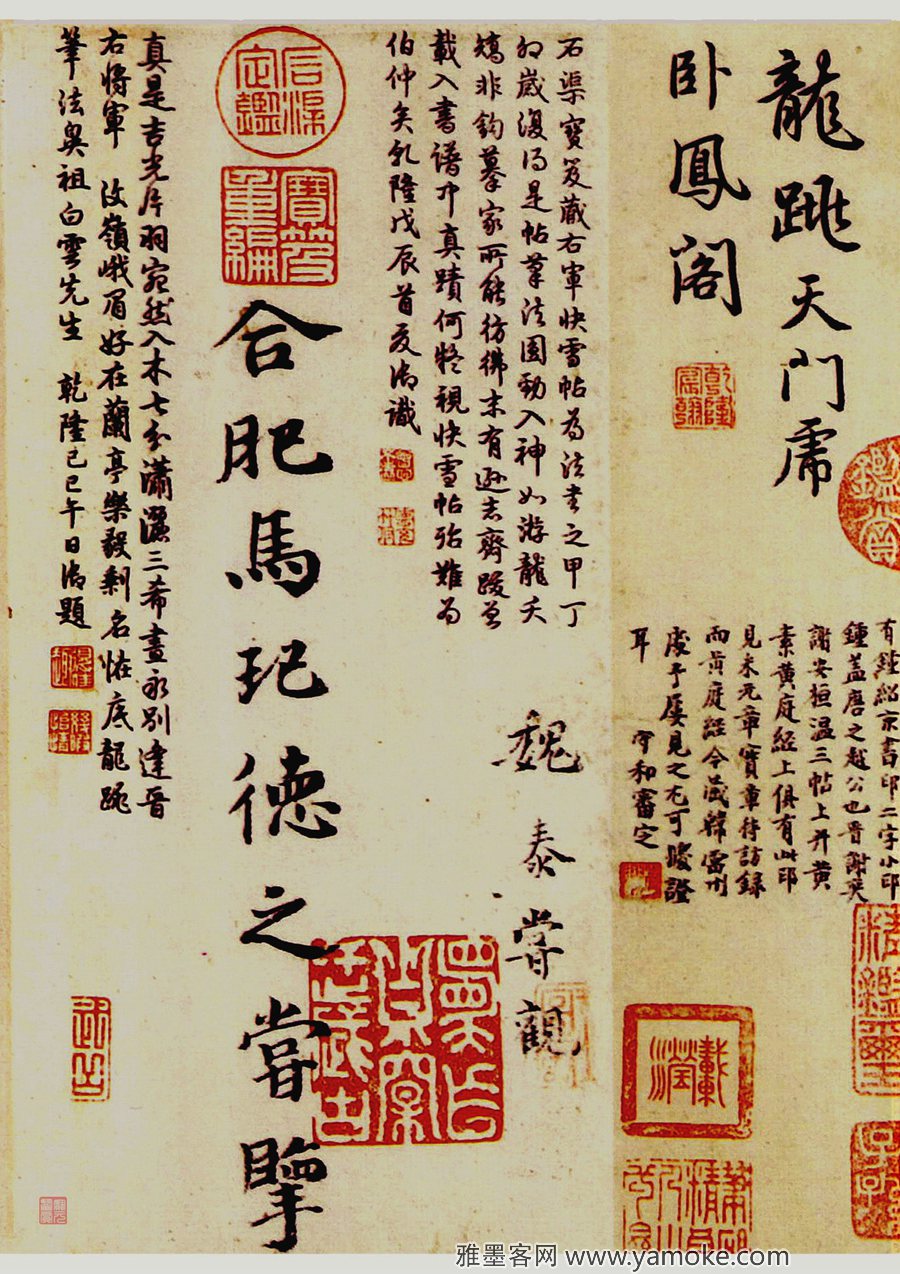 龍跳天门
卧鳳阁
有鍾紹京書印二字小印
鍾盖唐之越公也晋謝奕
謝安桓温三帖上并黄
素黄庭經上俱有此印
見米元章寶章待訪録
而黄庭經今蔵韓宗伯
處予屡見之尤可騐證
耳
石渠寶笈蔵右軍快雪帖為法書之甲丁
卯嵗復得是帖筆法圆勁入神如游龍夭
矯非鈎摹家所能彷彿末有遜志齊跋曾
載入書譜中真蹟何疑視快雪帖殆難为
伯仲矣乾隆戊辰首夏御識
魏泰甞觀
合肥馬玘德之甞擥
石渠定鑑
寳笈重編
真是吉光片羽宛然入木七分瀟灑三希晝永别逢晋
右將軍 汶嶺峨眉好在蘭亭樂毅剩名恠底龍跳
筆法奥祖白雲先生 乾隆己巳午日御題
雅墨客网 www.yamoke.com